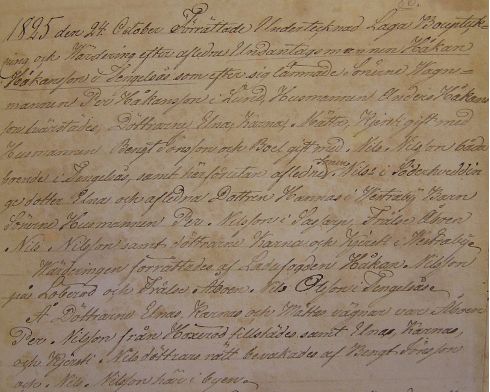 1825 den 24 October Förrättade Undertecknad Laga Bouptyck-
ning och Värdering efter aflednes Undantagsmannen Håkan
Håkansson i Tengelsås som efter sig lämnade Sönerne Wagn-
mannen Per Håkansson i Lund, Husmannen Anders Håkans
son härstädes, Döttrarne Elna, Karna, Mätta, gift med
Husmannen Bengt Jönsson och Boel gift med Nils Nilsson både
boende i Tengelsås, samt härförutan aflednes Sonen Nils i Söder
ge dotter Elna och afledna Dottren Hannas i Westraby Barn
Sönerne Husmannen Per Nilsson i Frälse Åboen
Nils Nilsson samt döttrarne Karna och Kjersti i Westraby
Wärderingen förrättades af Ladufogden Håkan Nilsson
på Löberöd och Frälse Åboen Nils Olsson i Tengelsås
Å Döttrarne Elnas, Karnas och Mättas vägnar vare Åboen
Per Nilsson från Hörröd tillstädes samt Elnas, Karnas
och Kjersti Nilsdöttrars rätt bevakades af Bengt Jönsson
och Nils Nilsson här i byen